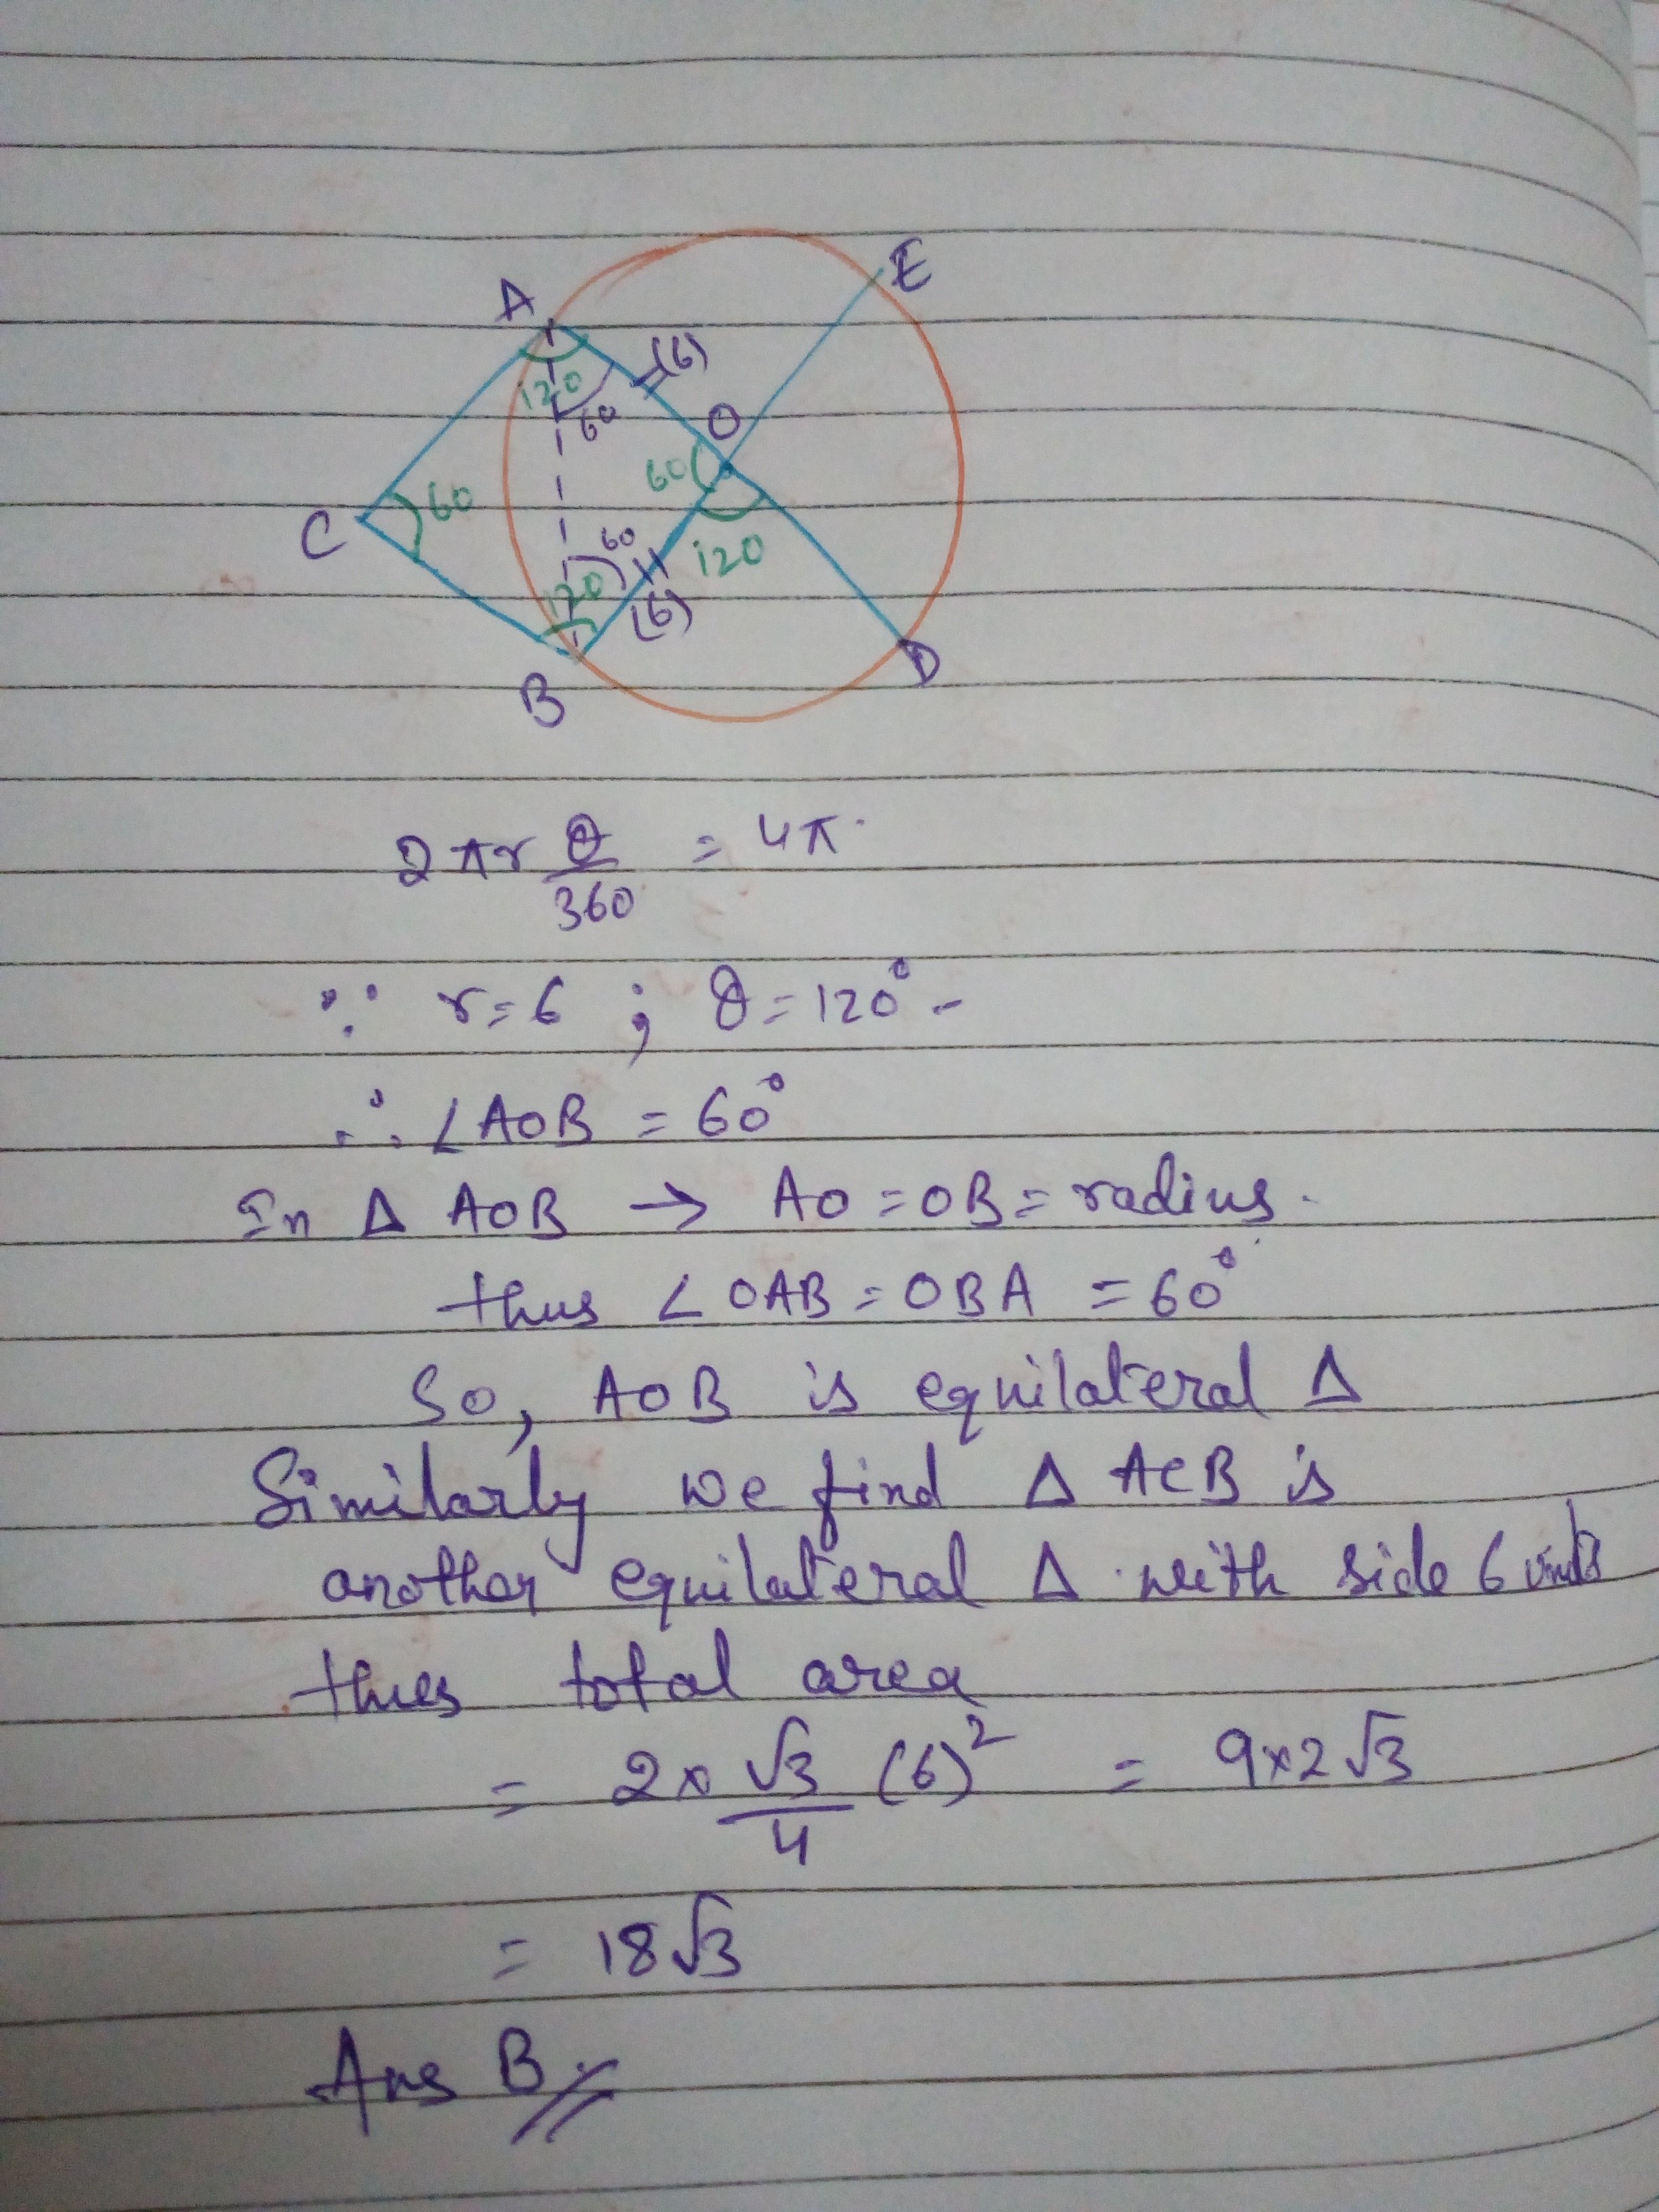 A
E
=(6)
120
60
O
60
C
60
60
120
120
(6)
D
B
2πr θ/360 = 4π.
∵ r=6 ; θ=120° -
∴ ∠AOB = 60°
In Δ AOB → AO = OB = radius.
thus ∠OAB = OBA = 60°
So, AOB is equilateral Δ
Similarly we find Δ ACB is
another equilateral Δ with side 6 units
thus total area
= 2 × √3/4 (6)² = 9×2√3
= 18√3
Ans B